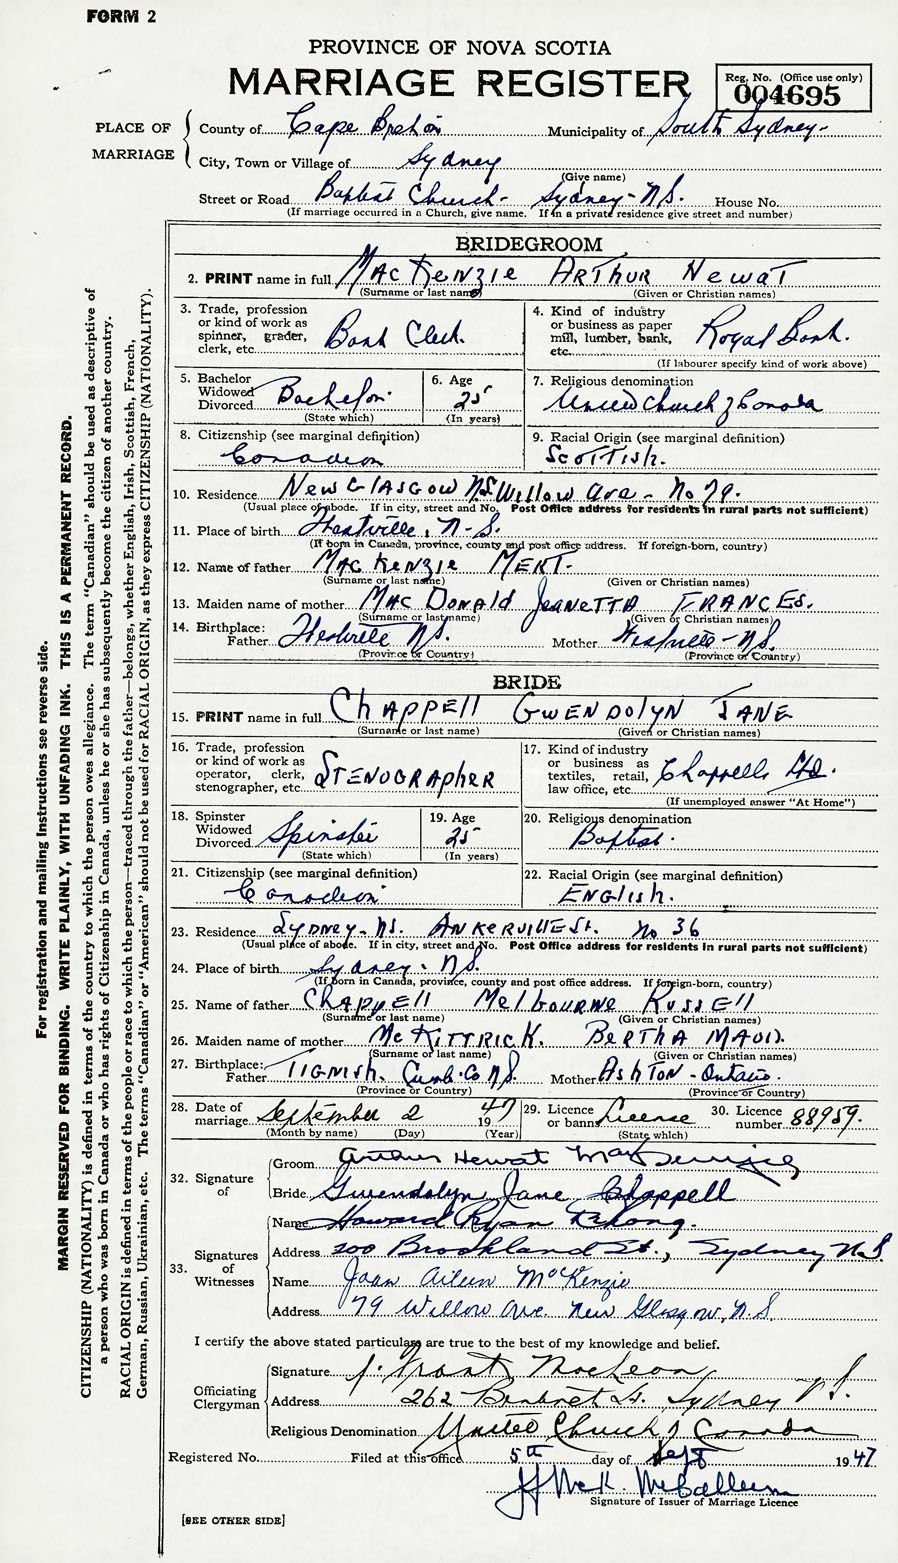 FORM 2
PROVINCE OF NOVA SCOTIA
MARRIAGE REGISTER
Reg. No. (Office use only)
004695
PLACE OF MARRIAGE
County of Cape Breton Municipality of South Sydney-
City, Town or Village of Sydney
(Give name)
Street or Road Baptist Church- Sydney-N.S. House No.
(If marriage occurred in a Church, give name. If in a private residence give street and number)
BRIDEGROOM
2. PRINT name in full MacKenzie Arthur Hewat
(Surname or last name) (Given or Christian names)
3. Trade, profession or kind of work as spinner, grader, clerk, etc. Bank Clerk.
4. Kind of industry or business as paper mill, lumber, bank, etc. Royal Bank.
(If labourer specify kind of work above)
5. Bachelor Widowed Divorced Bachelor
(State which)
6. Age 25
(In years)
7. Religious denomination United Church of Canada
8. Citizenship (see marginal definition) Canadian
9. Racial Origin (see marginal definition) Scottish.
10. Residence New Glasgow NS Willow Ave - No 79.
(Usual place of abode. If in city, street and No. Post Office address for residents in rural parts not sufficient)
11. Place of birth N.S.
(If born in Canada, province, county and post office address. If foreign-born, country)
12. Name of father MacKenzie
(Surname or last name) (Given or Christian names)
13. Maiden name of mother MacDonald Jeanetta Frances.
(Surname or last name) (Given or Christian names)
14. Birthplace: Father N.S. Mother N.S.
(Province or Country) (Province or Country)
BRIDE
15. PRINT name in full Chappell Gwendolyn Jane
(Surname or last name) (Given or Christian names)
16. Trade, profession or kind of work as operator, clerk, stenographer, etc. Stenographer
17. Kind of industry or business as textiles, retail, law office, etc. Chappells Ltd.
(If unemployed answer "At Home")
18. Spinster Widowed Divorced Spinster
(State which)
19. Age 25
(In years)
20. Religious denomination Baptist.
21. Citizenship (see marginal definition) Canadian
22. Racial Origin (see marginal definition) English.
23. Residence Sydney-NS. Ankerville St. No 36
(Usual place of abode. If in city, street and No. Post Office address for residents in rural parts not sufficient)
24. Place of birth Sydney. N.S.
(If born in Canada, province, county and post office address. If foreign-born, country)
25. Name of father Chappell Melbourne Russell
(Surname or last name) (Given or Christian names)
26. Maiden name of mother McKittrick. Bertha Maud.
(Surname or last name) (Given or Christian names)
27. Birthplace: Father Tignish. Cumb. Co N.S. Mother Ashton-Ontario.
(Province or Country) (Province or Country)
28. Date of marriage September 2 1947
(Month by name) (Day) (Year)
29. Licence or banns License
(State which)
30. Licence number 88959.
32. Signature of
Groom Arthur Hewat MacKenzie
Bride Gwendolyn Jane Chappell
33. Signatures of Witnesses
Name Howard Ryan
Address 200 Brookland St., Sydney N.S
Name Joan Aileen McKenzie
Address 79 Willow Ave. New Glasgow, N.S.
I certify the above stated particulars are true to the best of my knowledge and belief.
Officiating Clergyman
Signature J. Grant MacLeon
Address 262 St. Sydney N.S.
Religious Denomination United Church of Canada
Registered No. Filed at this office 5th day of Sept 1947
McCallum
Signature of Issuer of Marriage Licence
[SEE OTHER SIDE]
For registration and mailing instructions see reverse side.
MARGIN RESERVED FOR BINDING. WRITE PLAINLY, WITH UNFADING INK. THIS IS A PERMANENT RECORD.
CITIZENSHIP (NATIONALITY) is defined in terms of the country to which the person owes allegiance. The term "Canadian" should be used as descriptive of
a person who was born in Canada or who has rights of Citizenship in Canada, unless he or she has subsequently become the citizen of another country.
RACIAL ORIGIN is defined in terms of the people or race to which the person—traced through the father—belongs, whether English, Irish, Scottish, French,
German, Russian, Ukrainian, etc. The terms "Canadian" or "American" should not be used for RACIAL ORIGIN, as they express CITIZENSHIP (NATIONALITY).